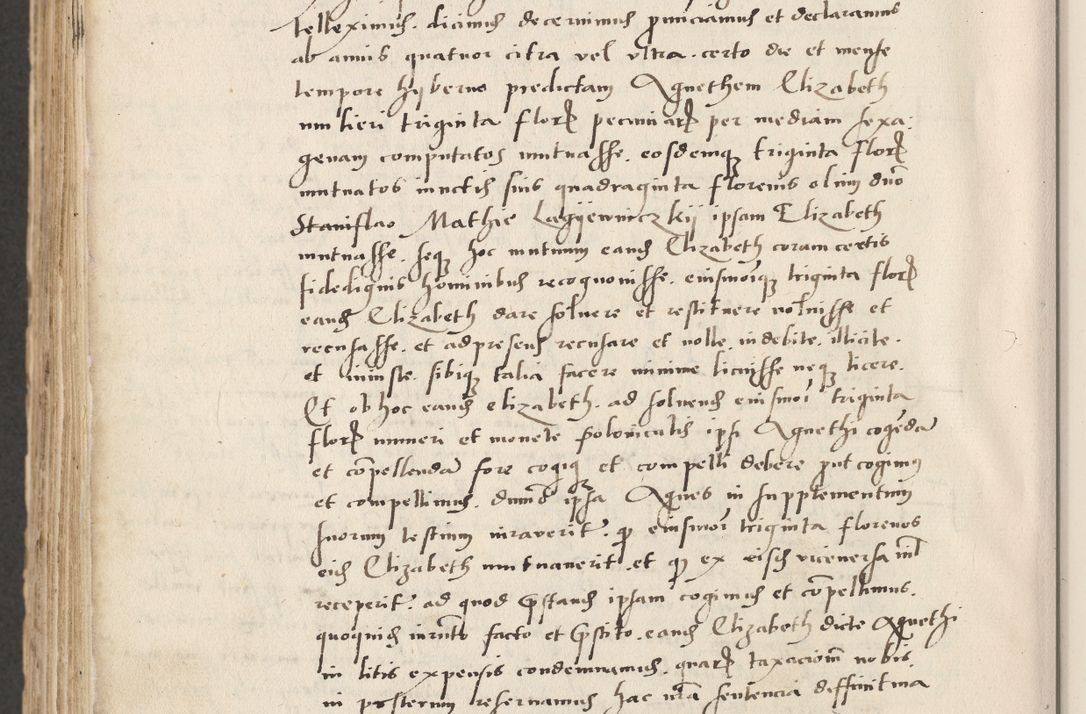 telleximus. dicimus decernimus pnunciamus et declaramus
ab annis quatuor citra vel vltra. certo die et mense
tempore hyberno predictam Agnethem Elizabeth
mulieri triginta flor pecuniar per mediam sexa
genam computatos mutuasse. eosdemq triginta flor
mutuatos iunctis suis quadraginta florenis olim dno
Stanislao Mathie ipsam Elizabeth
mutuasse. seq hoc mutuum eand Elizabeth coram certis
fidedignis hominibus recognouisse. eiusmoiq triginta flor
eand Elizabeth dare soluere et restituere noluisse et
recusasse. et ad presens recusare et nolle. indebite. illicite.
et iniuste. sibiq talia facere minime licuisse neq licere.
Et ob hoc eand elizabeth. ad soluend eiusmoi triginta
flor numeri et monete polonicalis ipsi Agnethi cogenda
et compellenda fore cogiq et compelli debere put cogimus
et compellimus. dumo ipsa Agnes in supplementum
suorum testium iurauerit. q eiusmoi triginta florenos
eid Elizabeth mutuauerit. et q ex eisd viceuersa nil
receperit. ad quod pstand ipsam cogimus et compellimus.
quoquid iurnto facto et pstito. eand Elizabeth dicte Agnethi
in litis expensis condemnamus. quar taxacionem nobis
in posterum reseruamus hac nra sentencia diffinitiua